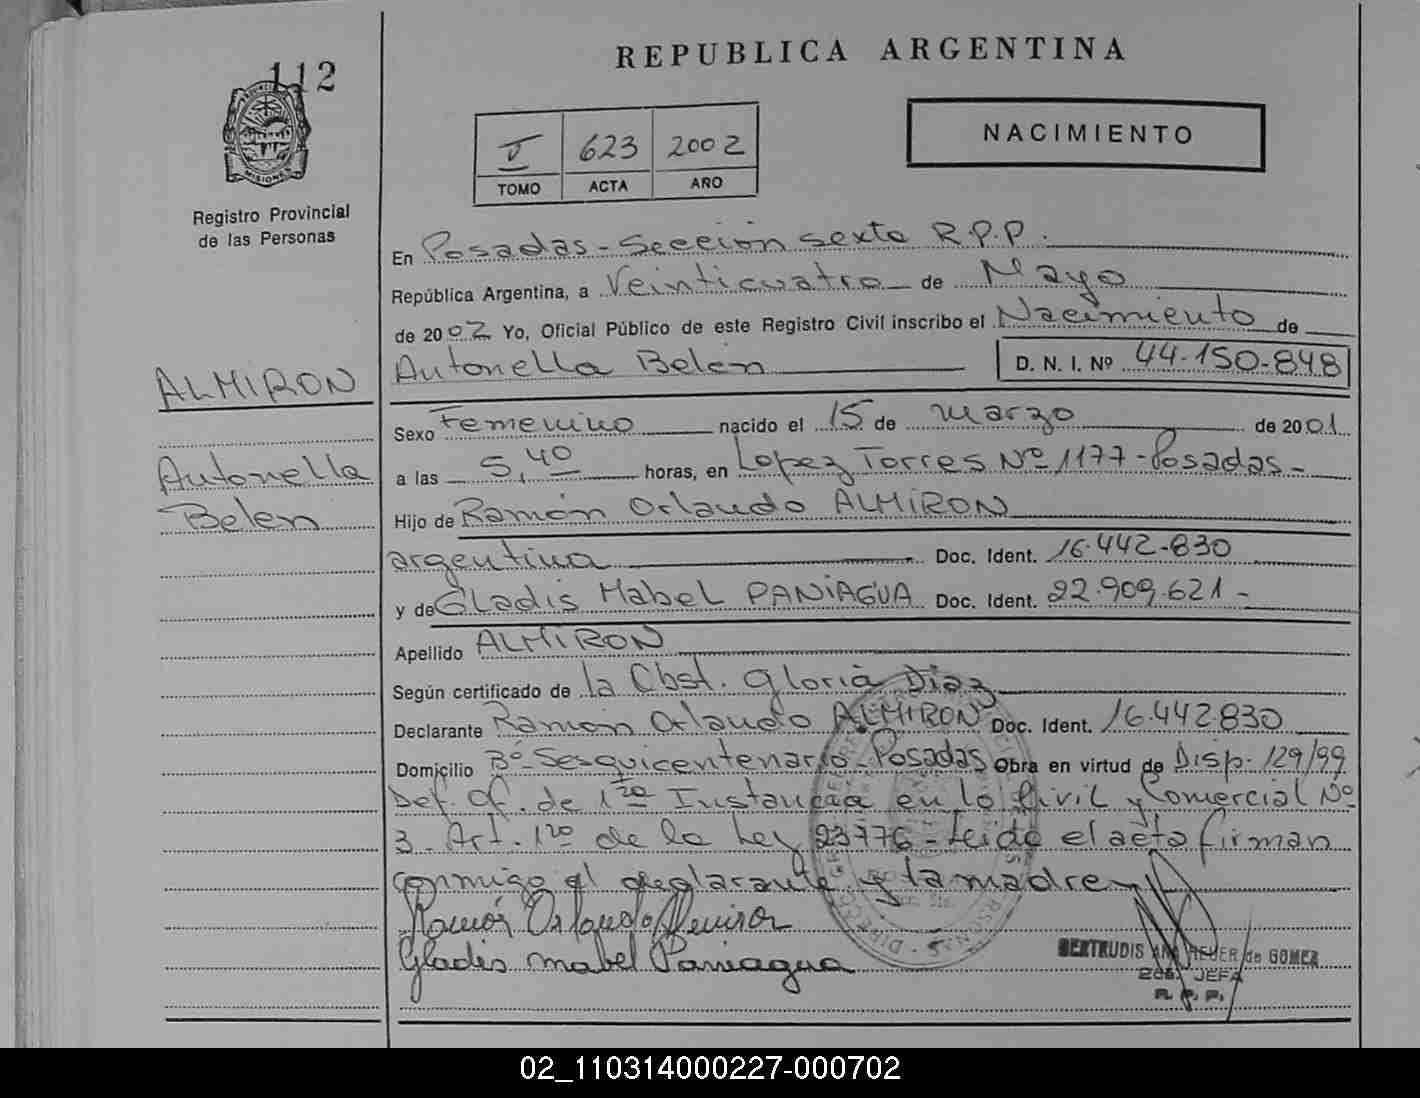 112
MISIONES
Registro Provincial
de las Personas
REPUBLICA ARGENTINA
NACIMIENTO
I 623 2002
TOMO ACTA AÑO
En Posadas - Sección sexta R.P.P.
República Argentina, a Veinticuatro de Mayo
de 2002 Yo, Oficial Público de este Registro Civil inscribo el Nacimiento de
ALMIRON
Antonella Belén D. N. I. Nº 44-150-848
Sexo Femenino nacido el 15 de marzo de 2001
Antonella
a las 5,40 horas, en Lopez Torres Nº 1177 - Posadas -
Belen
Hijo de Ramón Orlando ALMIRON
argentina Doc. Ident. 16.442-830
y de Gladis Mabel PANIAGUA Doc. Ident. 22.909.621 -
Apellido ALMIRON
Según certificado de la Obst. Gloria Diaz
Declarante Ramón Orlando ALMIRON Doc. Ident. 16.442.830
Domicilio Bº Sesquicentenario - Posadas Obra en virtud de Disp. 129/99
Def. Of. de 1ra Instancia en lo Civil y Comercial Nº
3 - Art. 1ro de la Ley 23776 - Leida el acta firman
conmigo el declarante y la madre
Ramón Orlando Almiron
Gladis Mabel Paniagua
GERTRUDIS ANA de GOMEZ
2da. JEFA
R. P. P.
02_110314000227-000702